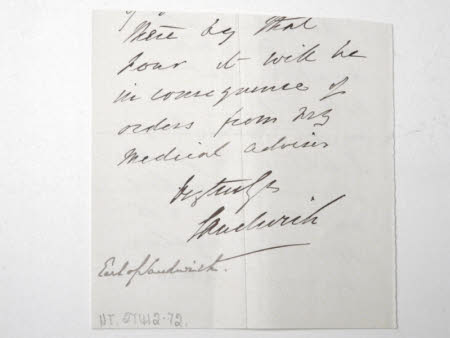 there by that
hour it will be
in consequence of
orders from my
Medical adviser
Sandwich
Earl of Sandwich.
NT. 27412-72.